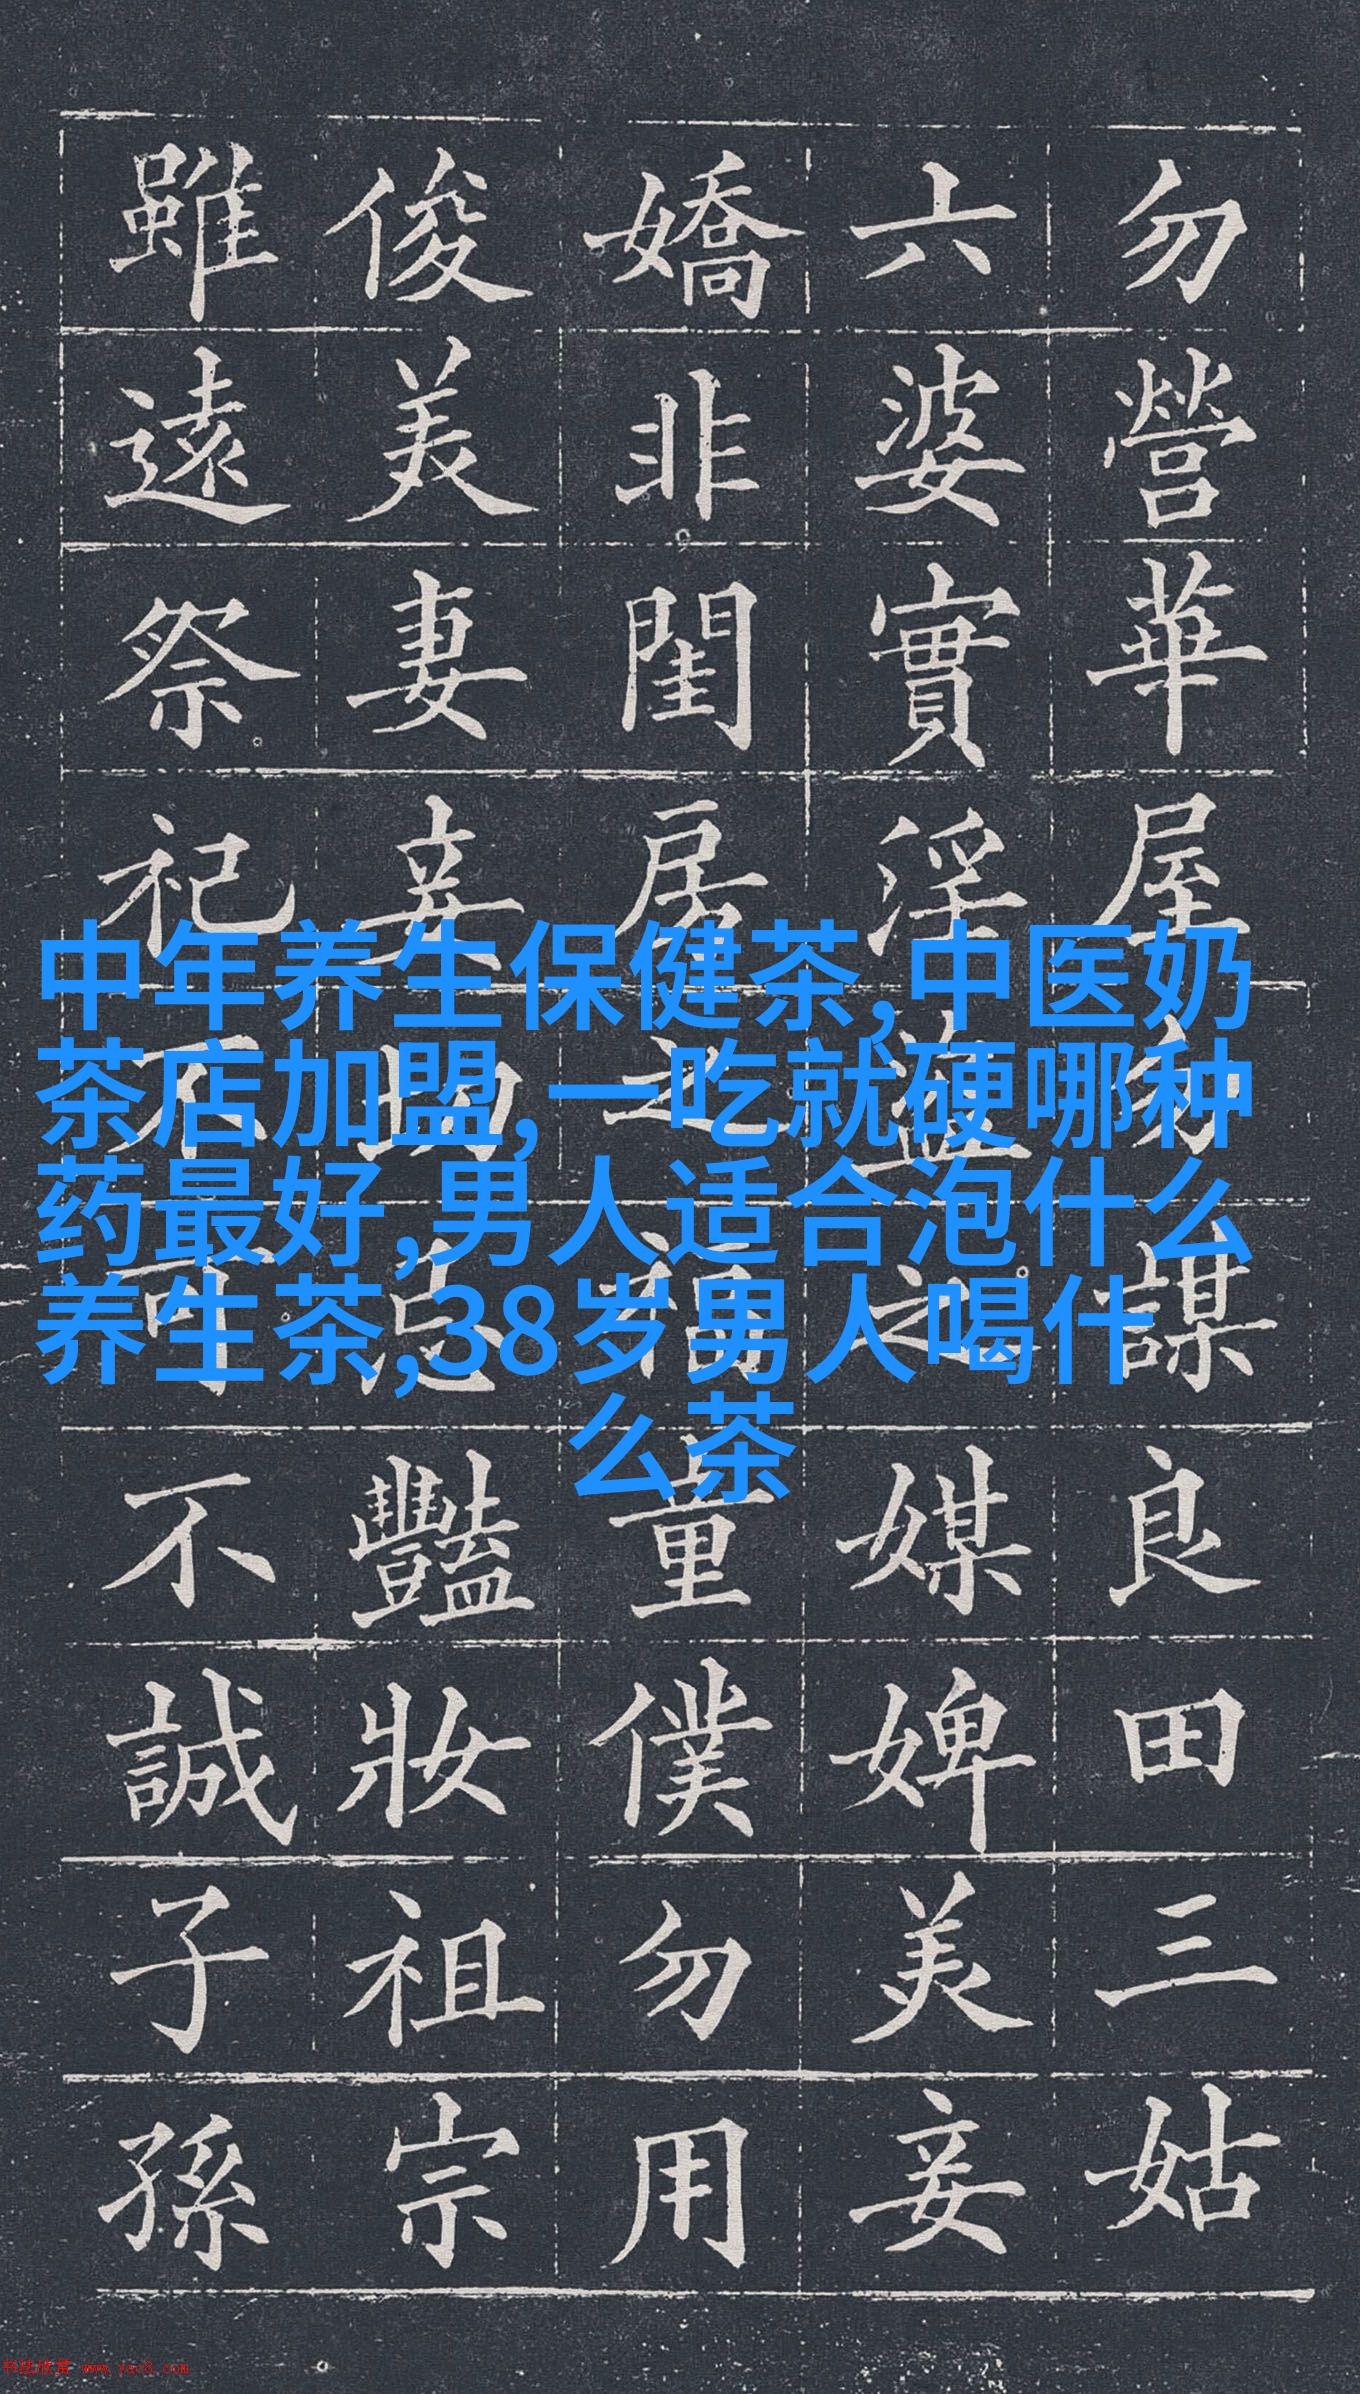 勿營華屋勿謀良田三姑
六婆實淫盜之媒婢美妾
嬌非閨房之福童僕勿用
俊美妻妾切忌豔妝祖宗
雖遠祭祀不可不誠子孫
中年养生保健茶,中医奶
茶店加盟,一吃就硬哪种
药最好,男人适合泡什么
养生茶,38岁男人喝什
么茶
书法欣赏 www.yac8.com